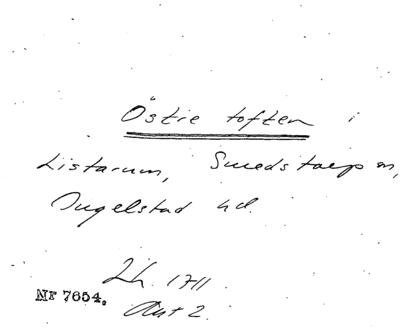 Östre toften i
Listarum, Smedstorp sn,
Ingelstad hd.
Lh. 1711.
Akt 2.
NR 7654.